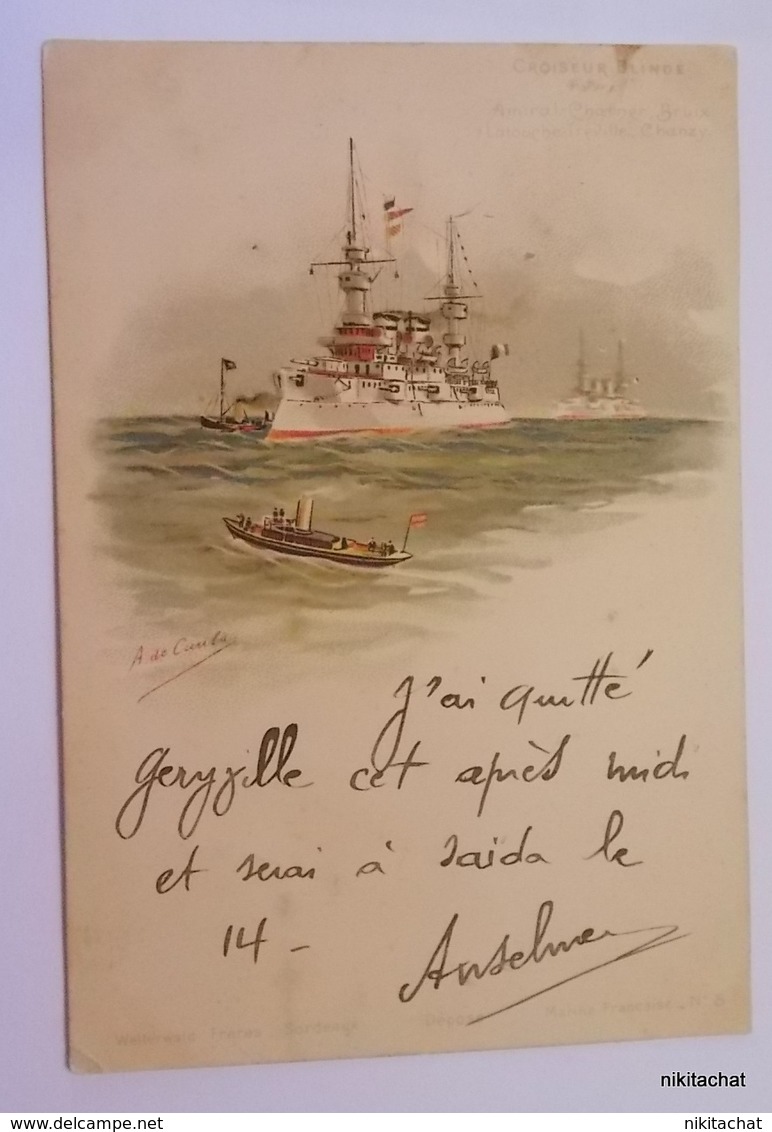 CROISEUR BLINDÉ
Amiral-Charner, Bruix
Latouche-Tréville, Chanzy.
A de Caula
J'ai quitté
Geryville cet après midi
et serai à Saida le
14 -
Anselme
Wetterwald Frères Bordeaux Déposé Marine Française _ N° 8
nikitachat
www.delcampe.net nikitachat